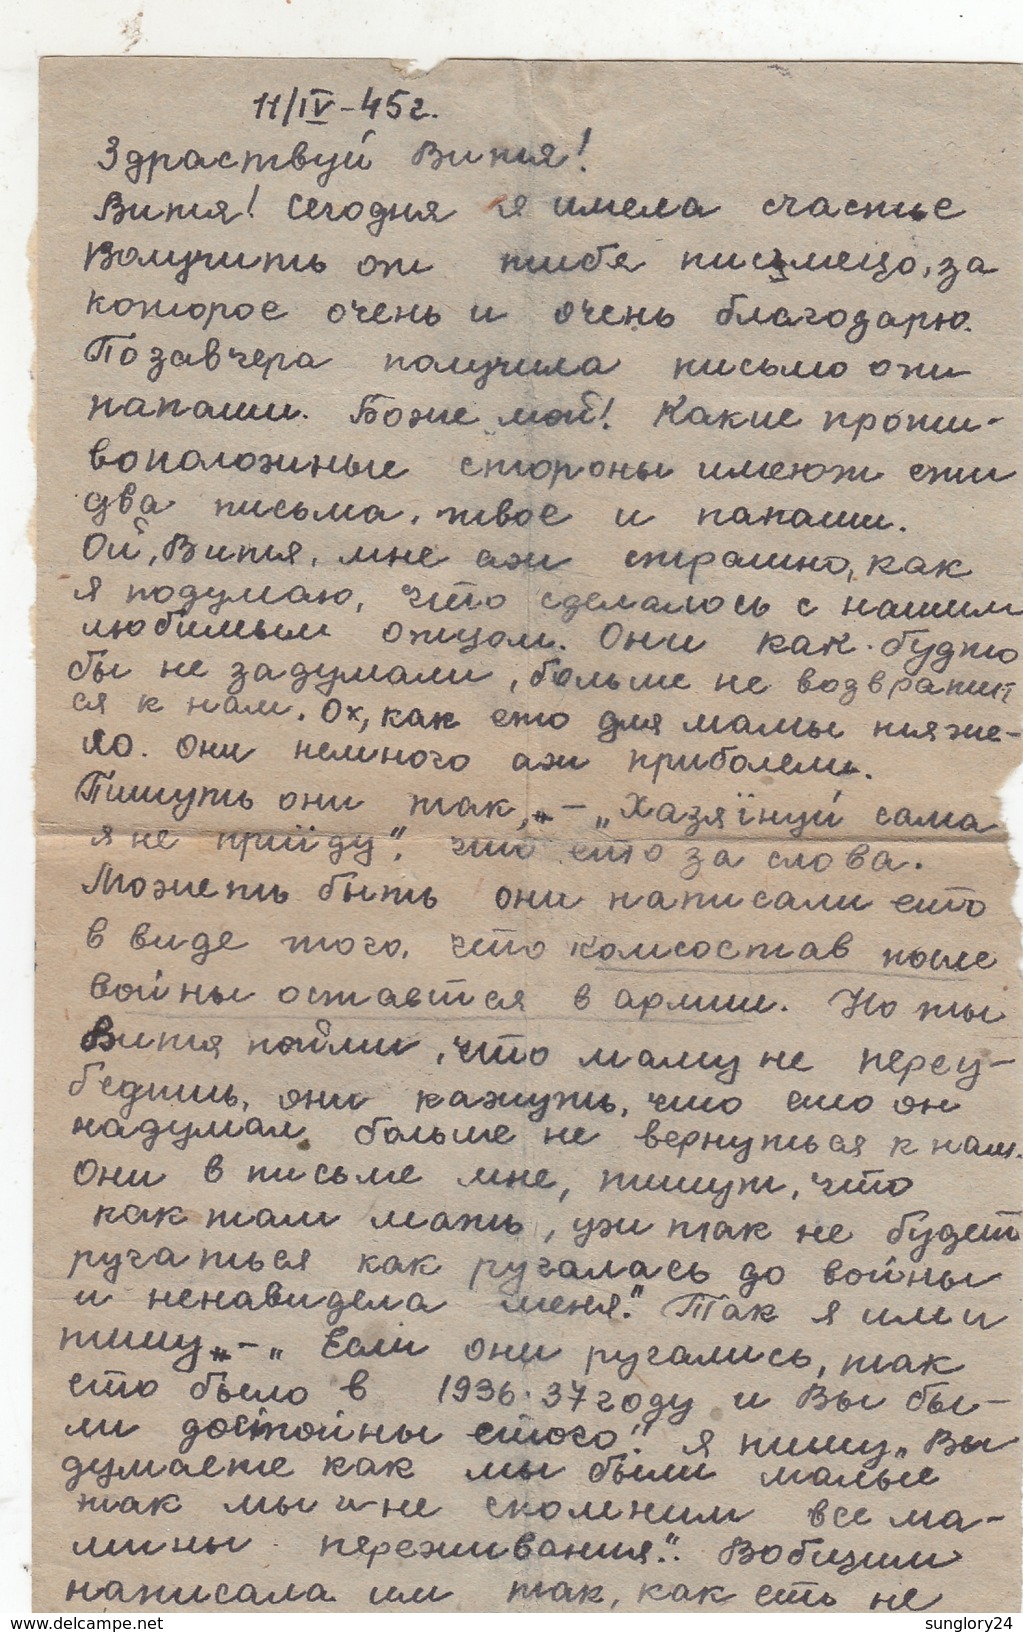 11/IV-45г.
Здраствуй Витя!
Витя! Сегодня я имела счастье
Волучить от тибя письмецо, за
которое очень и очень благодарю.
Позавчера получила письмо от
папаши. Боже мой! Какие проти-
воположные стороны имеют эти
два письма, твое и папаши.
Ой, Витя, мне аж страшно, как
я подумаю, что сделалось с нашим
любимым отцом. Они как-будто
бы не задумали, больше не возвратит
ся к нам. Ох, как ето для мамы тяже-
ло. Они немного аж приболели.
Пишуть они так, „- „Хазяїнуй сама
я не прийду", что ето за слова.
Может быть они написали ето
в виде того, что комсостав после
войны остается в армии. Но ты
Витя пойми, что маму не переу-
бедишь, они кажуть, что ето он
надумал больше не вернуться к нам.
Они в письме мне, пишут, что
как там мать, уж так не будет
ругаться как ругалась до войны
и ненавидела меня." Так я им и
пишу „- „ Если они ругались, так
ето было в 1936-37 году и Вы бы-
ли достойны етого". я пишу „Вы
думаете как мы были малые
так мы и не спомним все ма-
мины переживания". Вобщим
написала им так, как есть не
www.delcampe.net
sunglory24